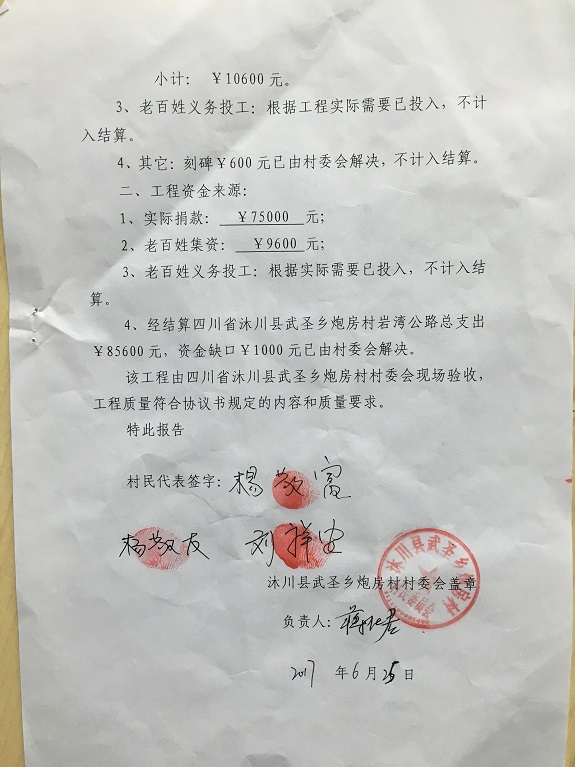 小计： ￥10600 元。
3、老百姓义务投工：根据工程实际需要已投入，不计
入结算。
4、其它：刻碑￥600 元已由村委会解决，不计入结算。
二、工程资金来源：
1、实际捐款： ￥75000 元；
2、老百姓集资： ￥9600 元；
3、老百姓义务投工：根据实际需要已投入，不计入结
算。
4、经结算四川省沐川县武圣乡炮房村岩湾公路总支出
￥85600 元，资金缺口￥1000 元已由村委会解决。
该工程由四川省沐川县武圣乡炮房村村委会现场验收，
工程质量符合协议书规定的内容和质量要求。
特此报告
村民代表签字：杨敬富
杨敬友 刘祥
沐川县武圣乡炮房村
村民委员会
沐川县武圣乡炮房村村委会盖章
负责人：蒋君
2017 年 6 月 25 日